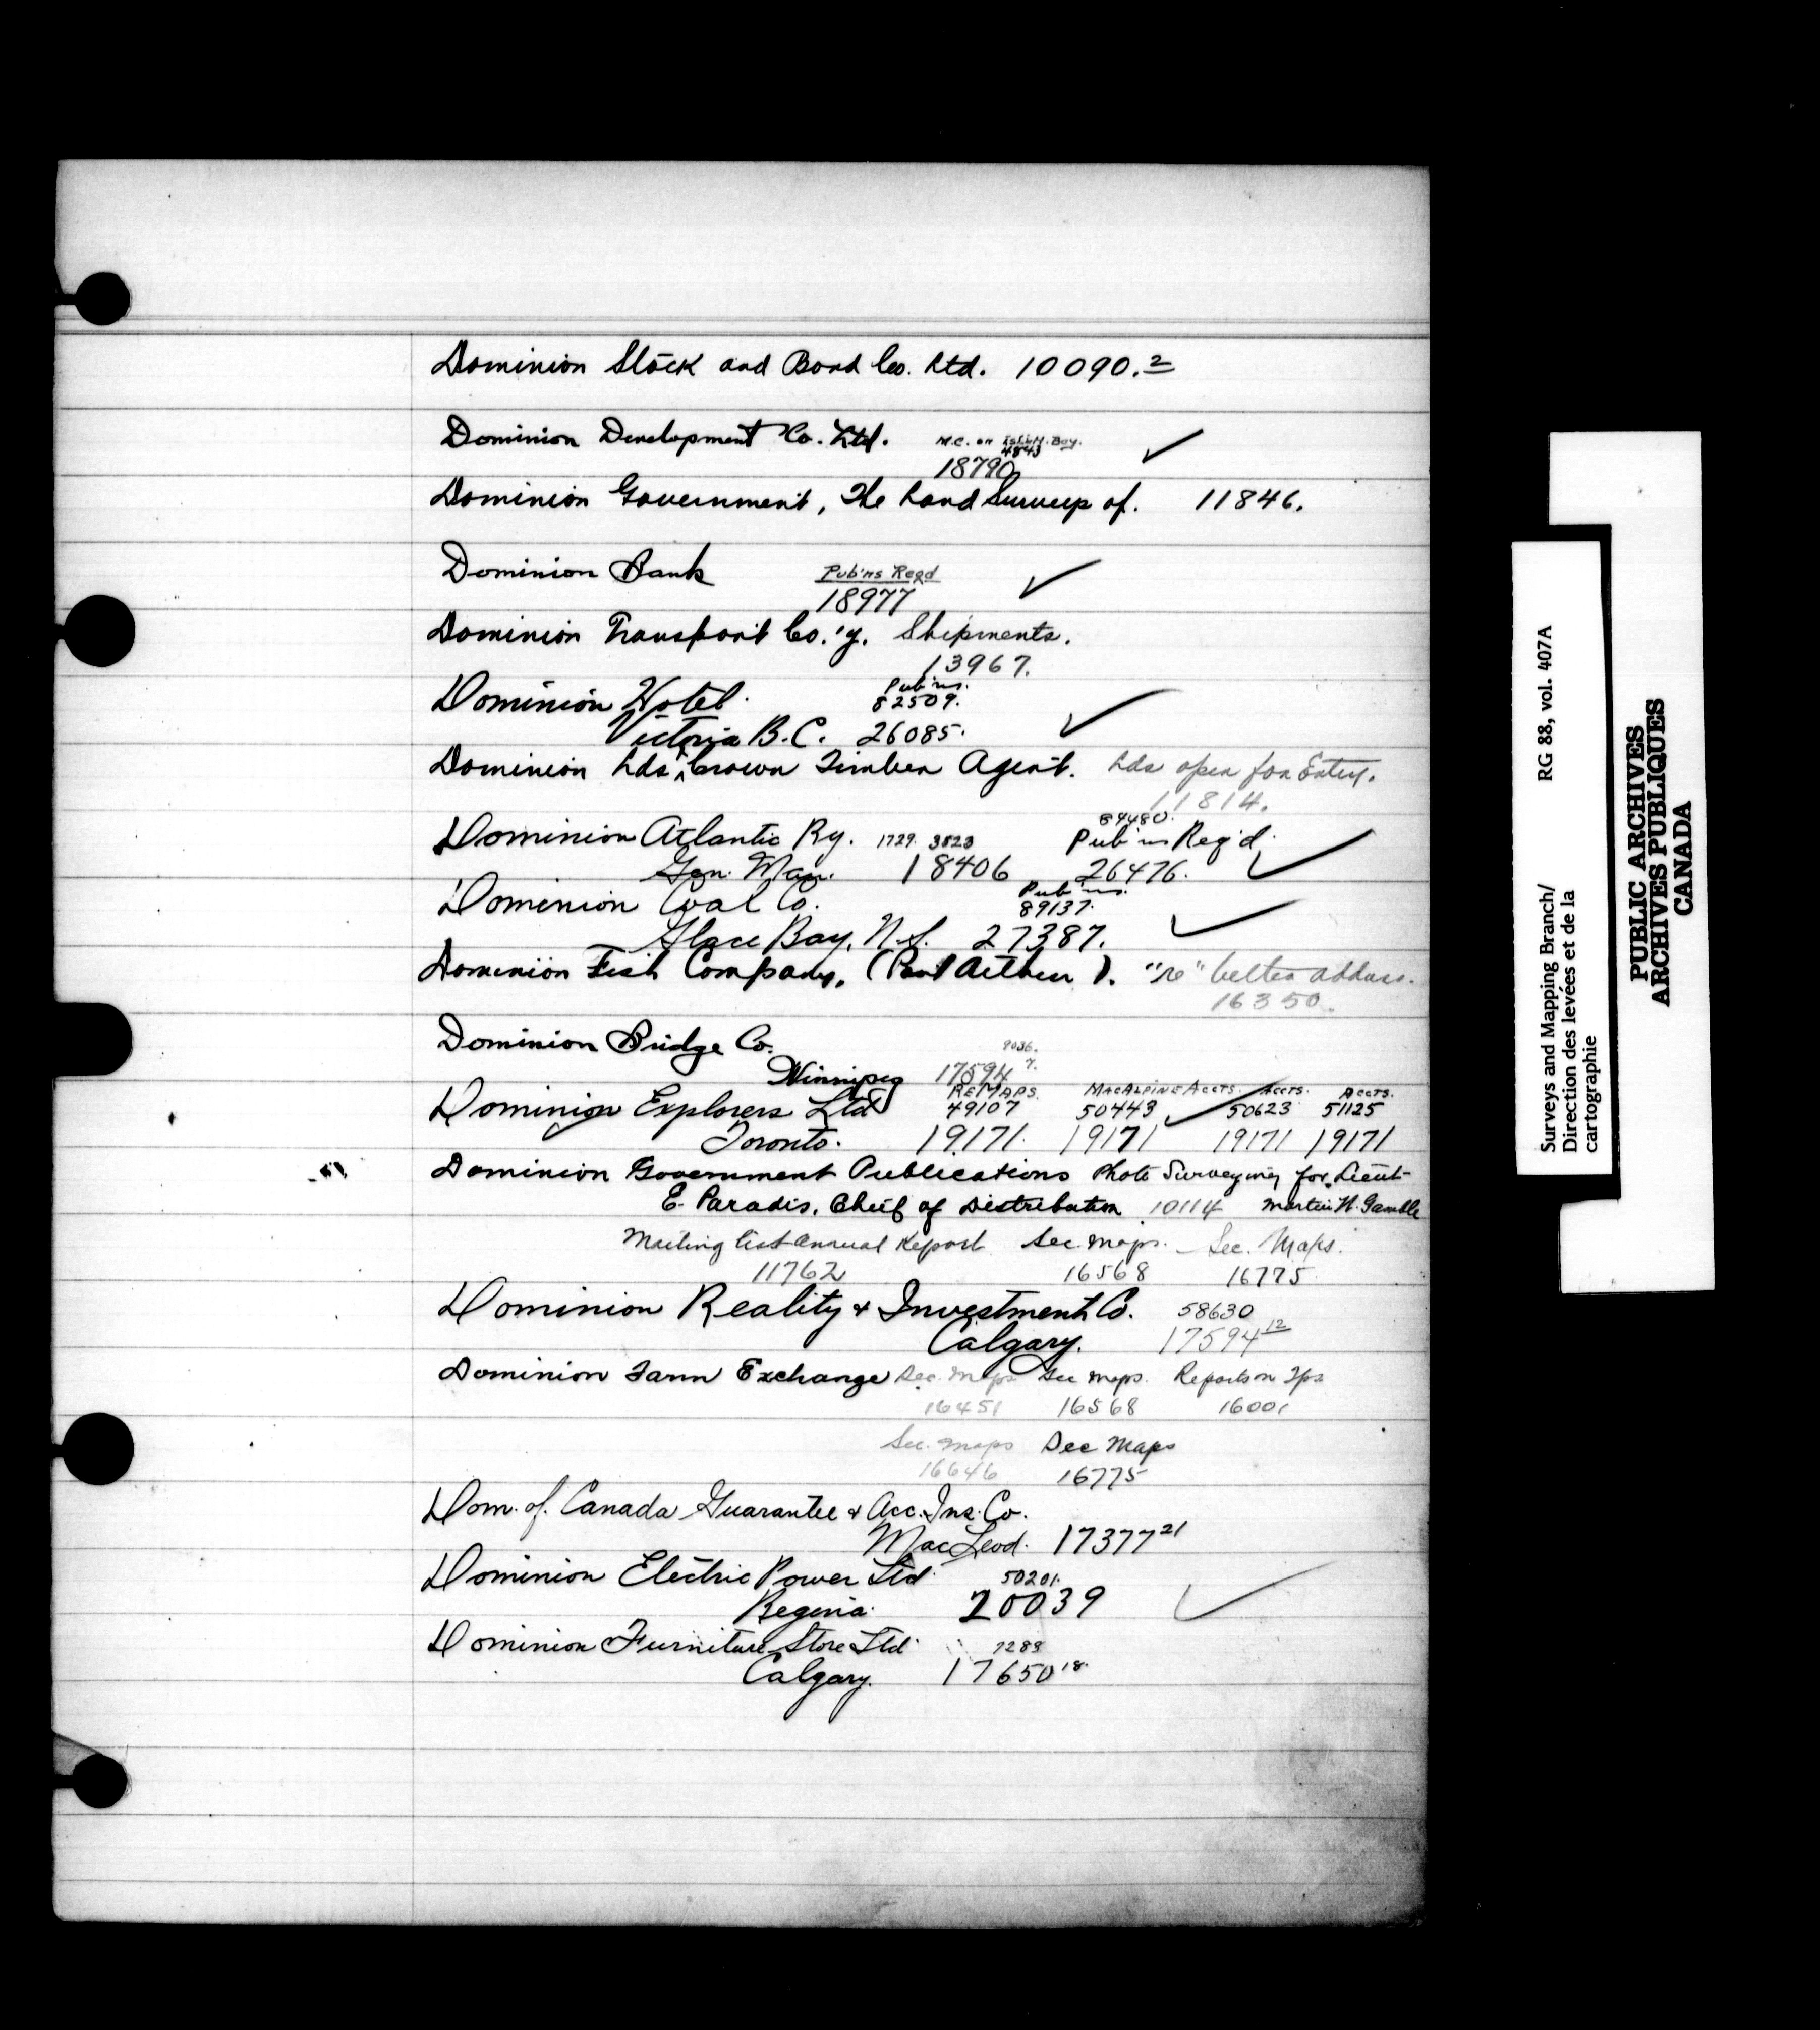 Dominion Stock and Bond Co. Ltd. 10090.2
Dominion Development Co. Ltd. M.C. on Isl. H. Bay. ✓
4843
18790
Dominion Government, The Land Surveys of. 11846.
Dominion Bank Pub'ns Reqd ✓
18977
Dominion Transport Co.'y. Shipments.
13967.
Dominion Hotel. Pub'ns. 82509.
Victoria B.C. 26085. ✓
Dominion Lds ^ Crown Timber Agent. Lds open for Entry.
11814.
89480.
Dominion Atlantic Ry. 1729. 3823 Pub'ns Req'd.
Gen. Man. 18406 26476. ✓
Dominion Coal Co. Pub'ns. 89137.
Glace Bay, N.S. 27387. ✓
Dominion Fish Company, (Paul Aitken). "re" better address.
16350.
Dominion Bridge Co. 9036.
Winnipeg 17594 7.
Re Maps. MacAlpine Accts. Accts. Accts.
Dominion Explorers Ltd 49107 50443 ✓ 50623 51125
Toronto. 19171. 19171 19171 19171
Dominion Government Publications Photo Surveying for Lieut-
E. Paradis, Chief of Distribution 10114 Martin N. Gamble
Mailing list Annual Report Sec. maps. Sec. Maps.
11762 16568 16775
Dominion Reality & Investment Co. 58630
Calgary. 17594 12
Dominion Farm Exchange Sec. Maps Sec Maps. Reports on Tps
16451 16568 16001
Sec. Maps Sec Maps
16646 16775
Dom. of. Canada Guarantee & Acc. Ins. Co.
MacLeod. 17377 21
Dominion Electric Power Ltd. 50201.
Regina. 20039 ✓
Dominion Furniture Store Ltd. 7288
Calgary. 17650 18.
RG 88, vol. 407A
Surveys and Mapping Branch/
Direction des levées et de la
cartographie
PUBLIC ARCHIVES
ARCHIVES PUBLIQUES
CANADA